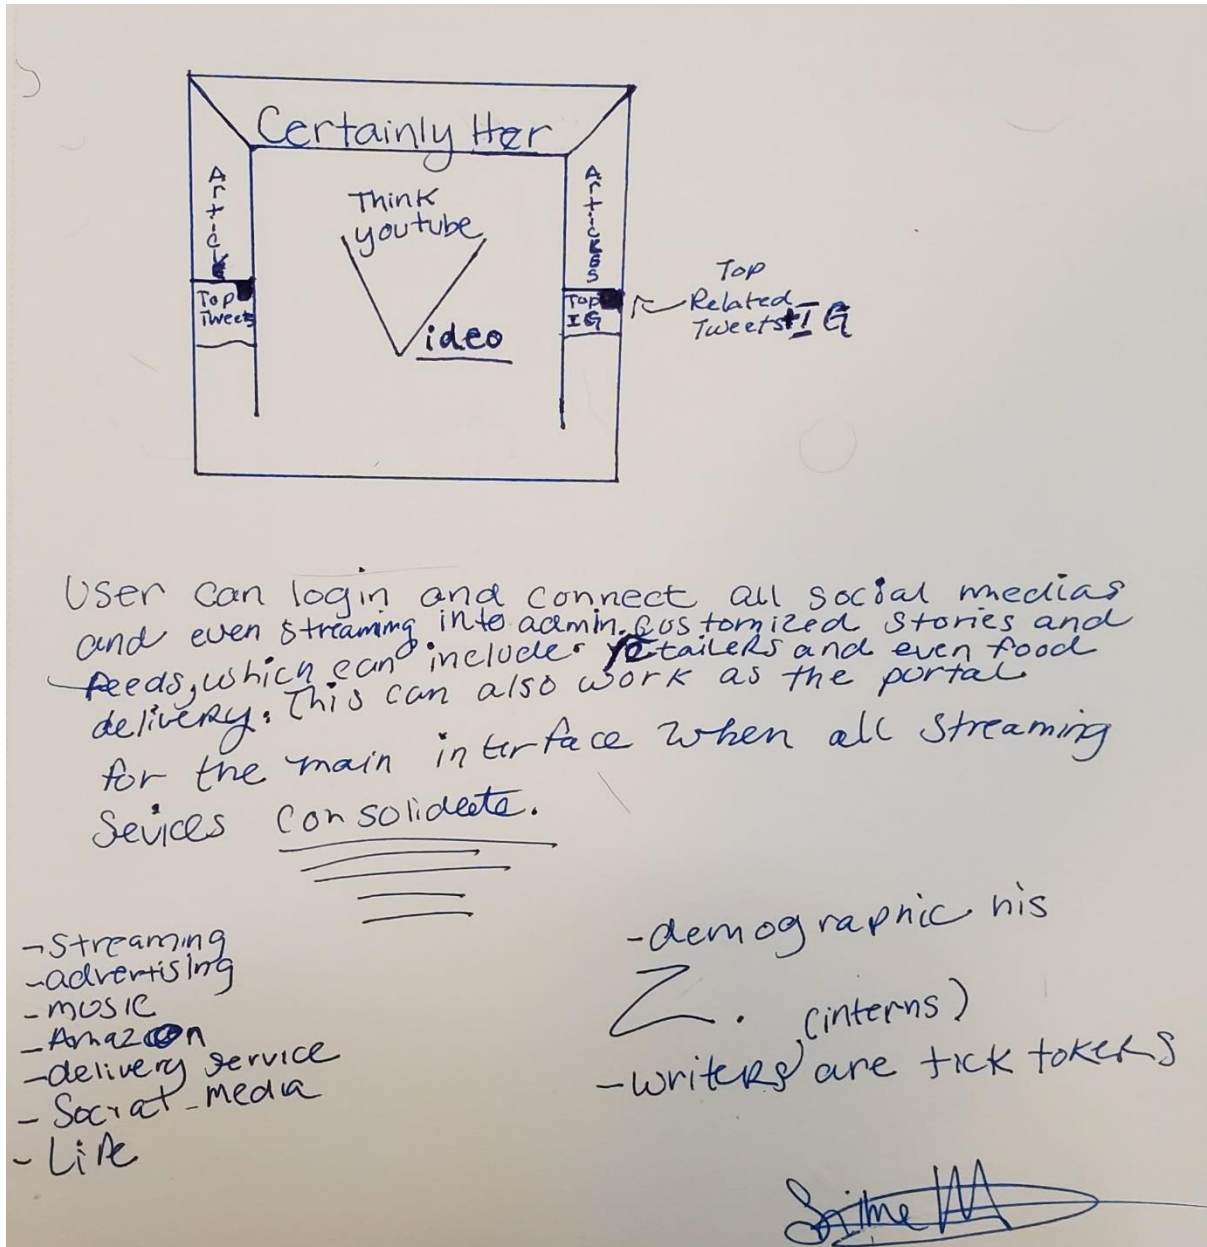 Certainly Her
Articles
Think
youtube
Video
Articles
Top
Tweets
Top
IG
Top
Related
Tweets + IG
User can login and connect all social medias
and even streaming into admin. customized stories and
feeds, which can include retailers and even food
delivery. This can also work as the portal
for the main interface when all streaming
Sevices Consolidate.
- streaming
- advertising
- music
- Amazon
- delivery service
- Social media
- Life
- demographic
Z.
(interns)
- writers are tick tokers